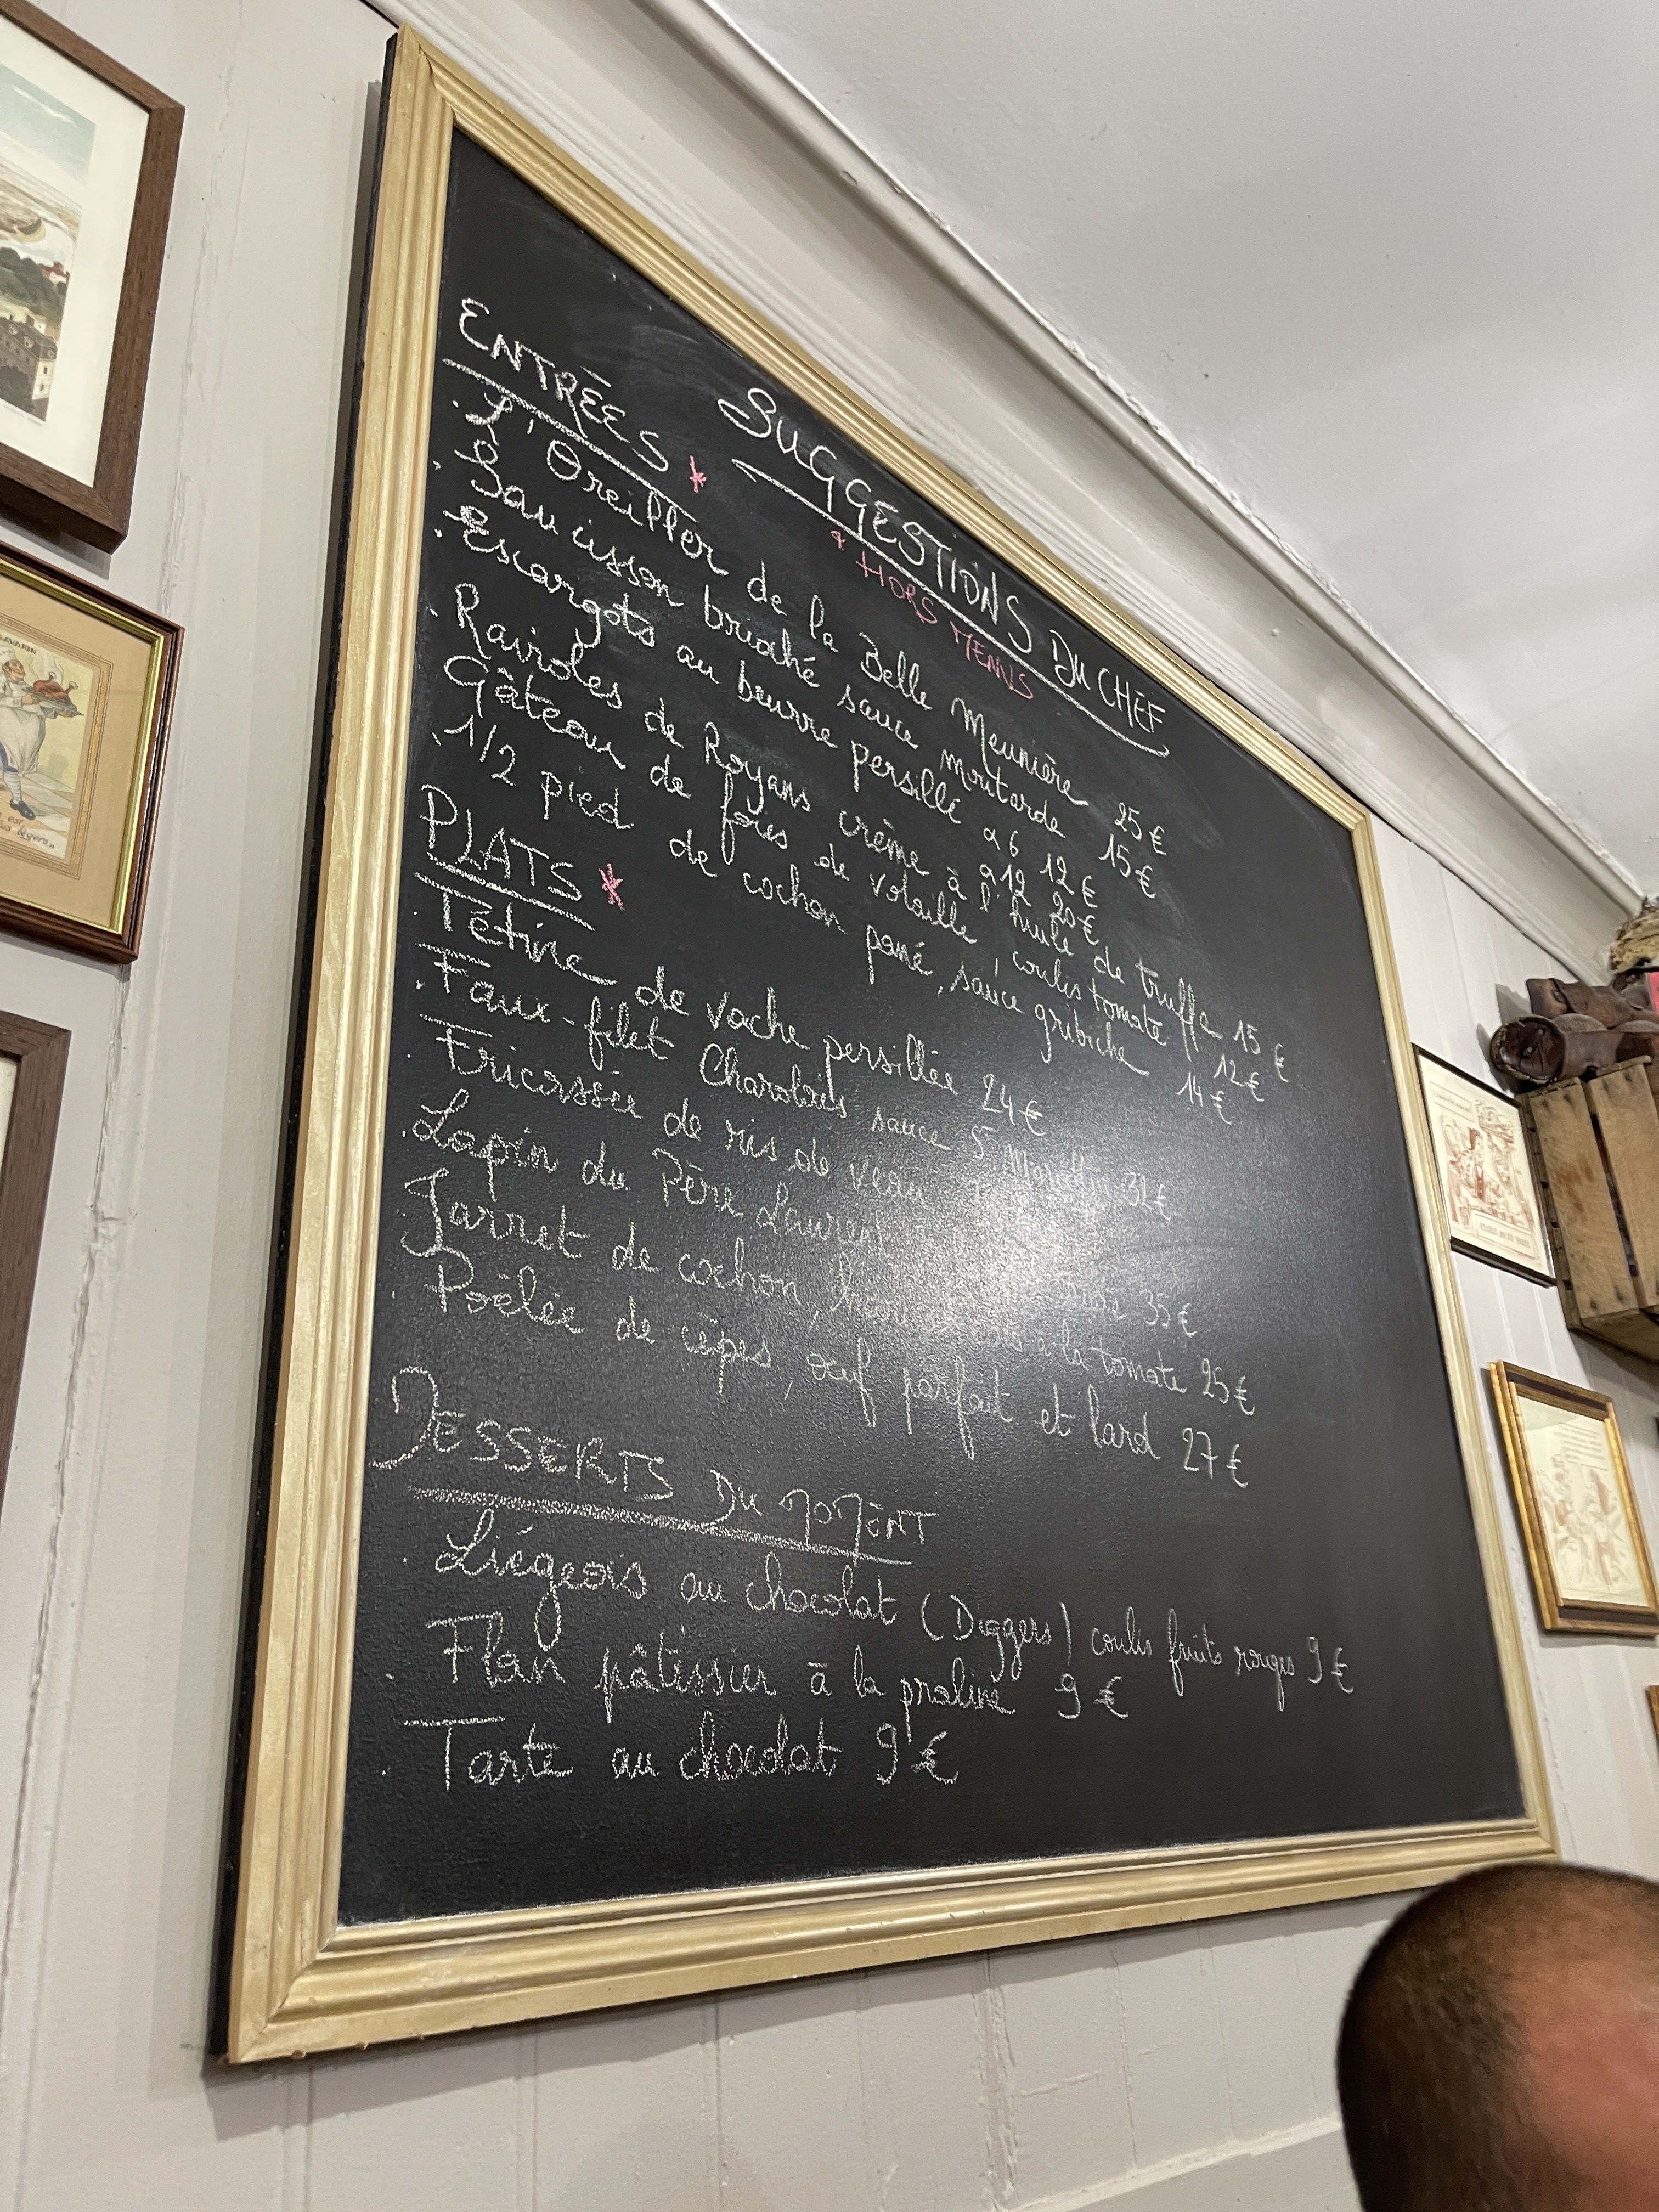 SUGGESTIONS DU CHEF
* HORS MENUS
ENTRÉES *
. L'Oreiller de la Belle Meunière 25 €
. Saucisson brioché sauce moutarde 15 €
. Escargots au beurre persillé à 6 12 €
à 12 20 €
. Ravioles de Royans crème à l'huile de truffe 15 €
Gâteau de foies de volaille, coulis tomate 12 €
. 1/2 pied de cochon pané, sauce gribiche 14 €
PLATS *
. Tétine de vache persillée 24 €
. Faux-filet Charolais sauce
. Fricassée de ris de veau 35 €
. Lapin du Père Laurent à la tomate 25 €
Jarret de cochon,
. Poêlée de cèpes, œuf parfait et lard 27 €
DESSERTS DU MOMENT
. Liégeois au chocolat (Diggers) coulis fruits rouges 9 €
. Flan pâtissier à la praline 9 €
. Tarte au chocolat 9 €